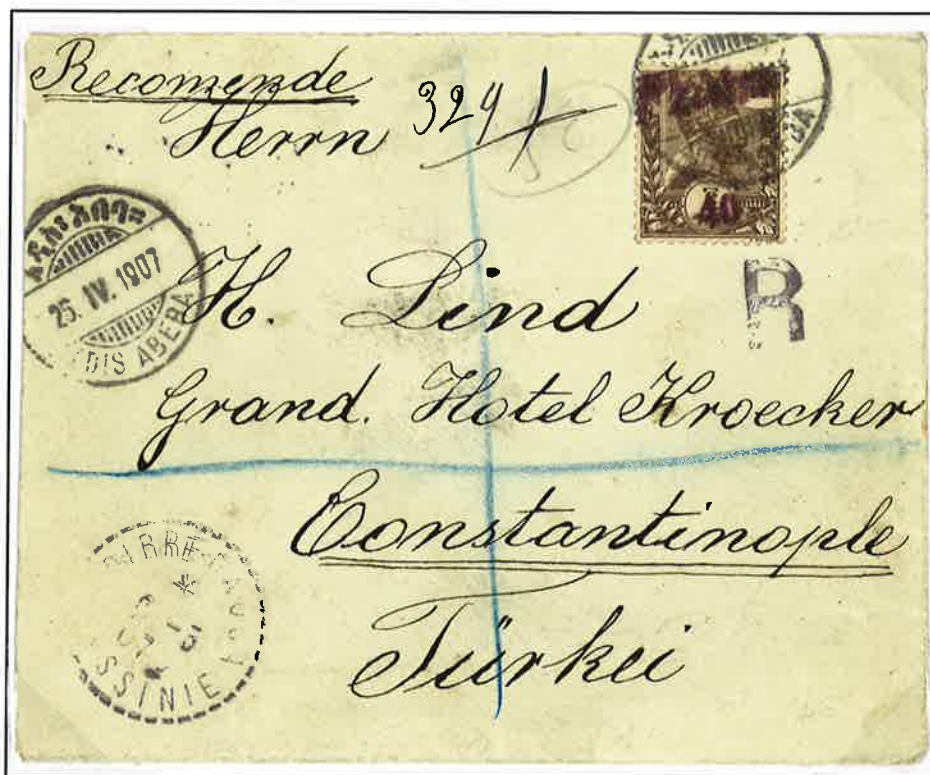 Recomende
Herrn 324
አዲስ፡አበባ፡
25. IV. 1907
DIS ABEBA
40
BA
R
H. Lind
Grand. Hotel Kroecker
Constantinople
Türkei
SSINIE